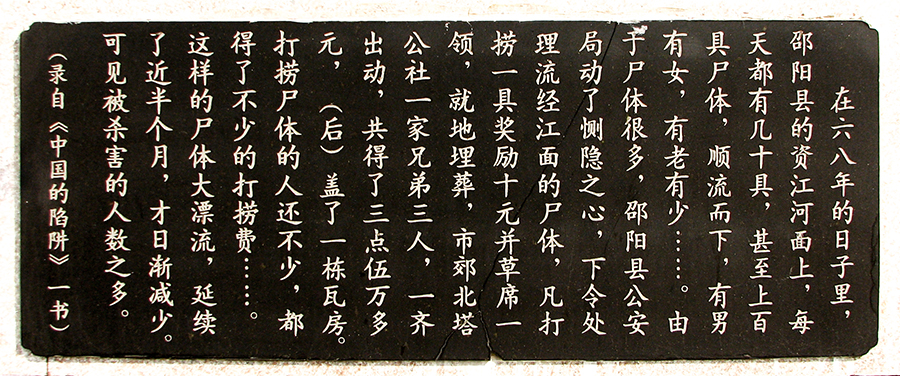 在六八年的日子里，
邵阳县的资江河面上，每
天都有几十具，甚至上百
具尸体，顺流而下，有男
有女，有老有少……。由
于尸体很多，邵阳县公安
局动了恻隐之心，下令处
理流经江面的尸体，凡打
捞一具奖励十元并草席一
领，就地埋葬，市郊北塔
公社一家兄弟三人，一齐
出动，共得了三点伍万多
元，（后）盖了一栋瓦房。
打捞尸体的人还不少，都
得了不少的打捞费……。
这样的尸体大漂流，延续
了近半个月，才日渐减少。
可见被杀害的人数之多。
（录自《中国的陷阱》一书）